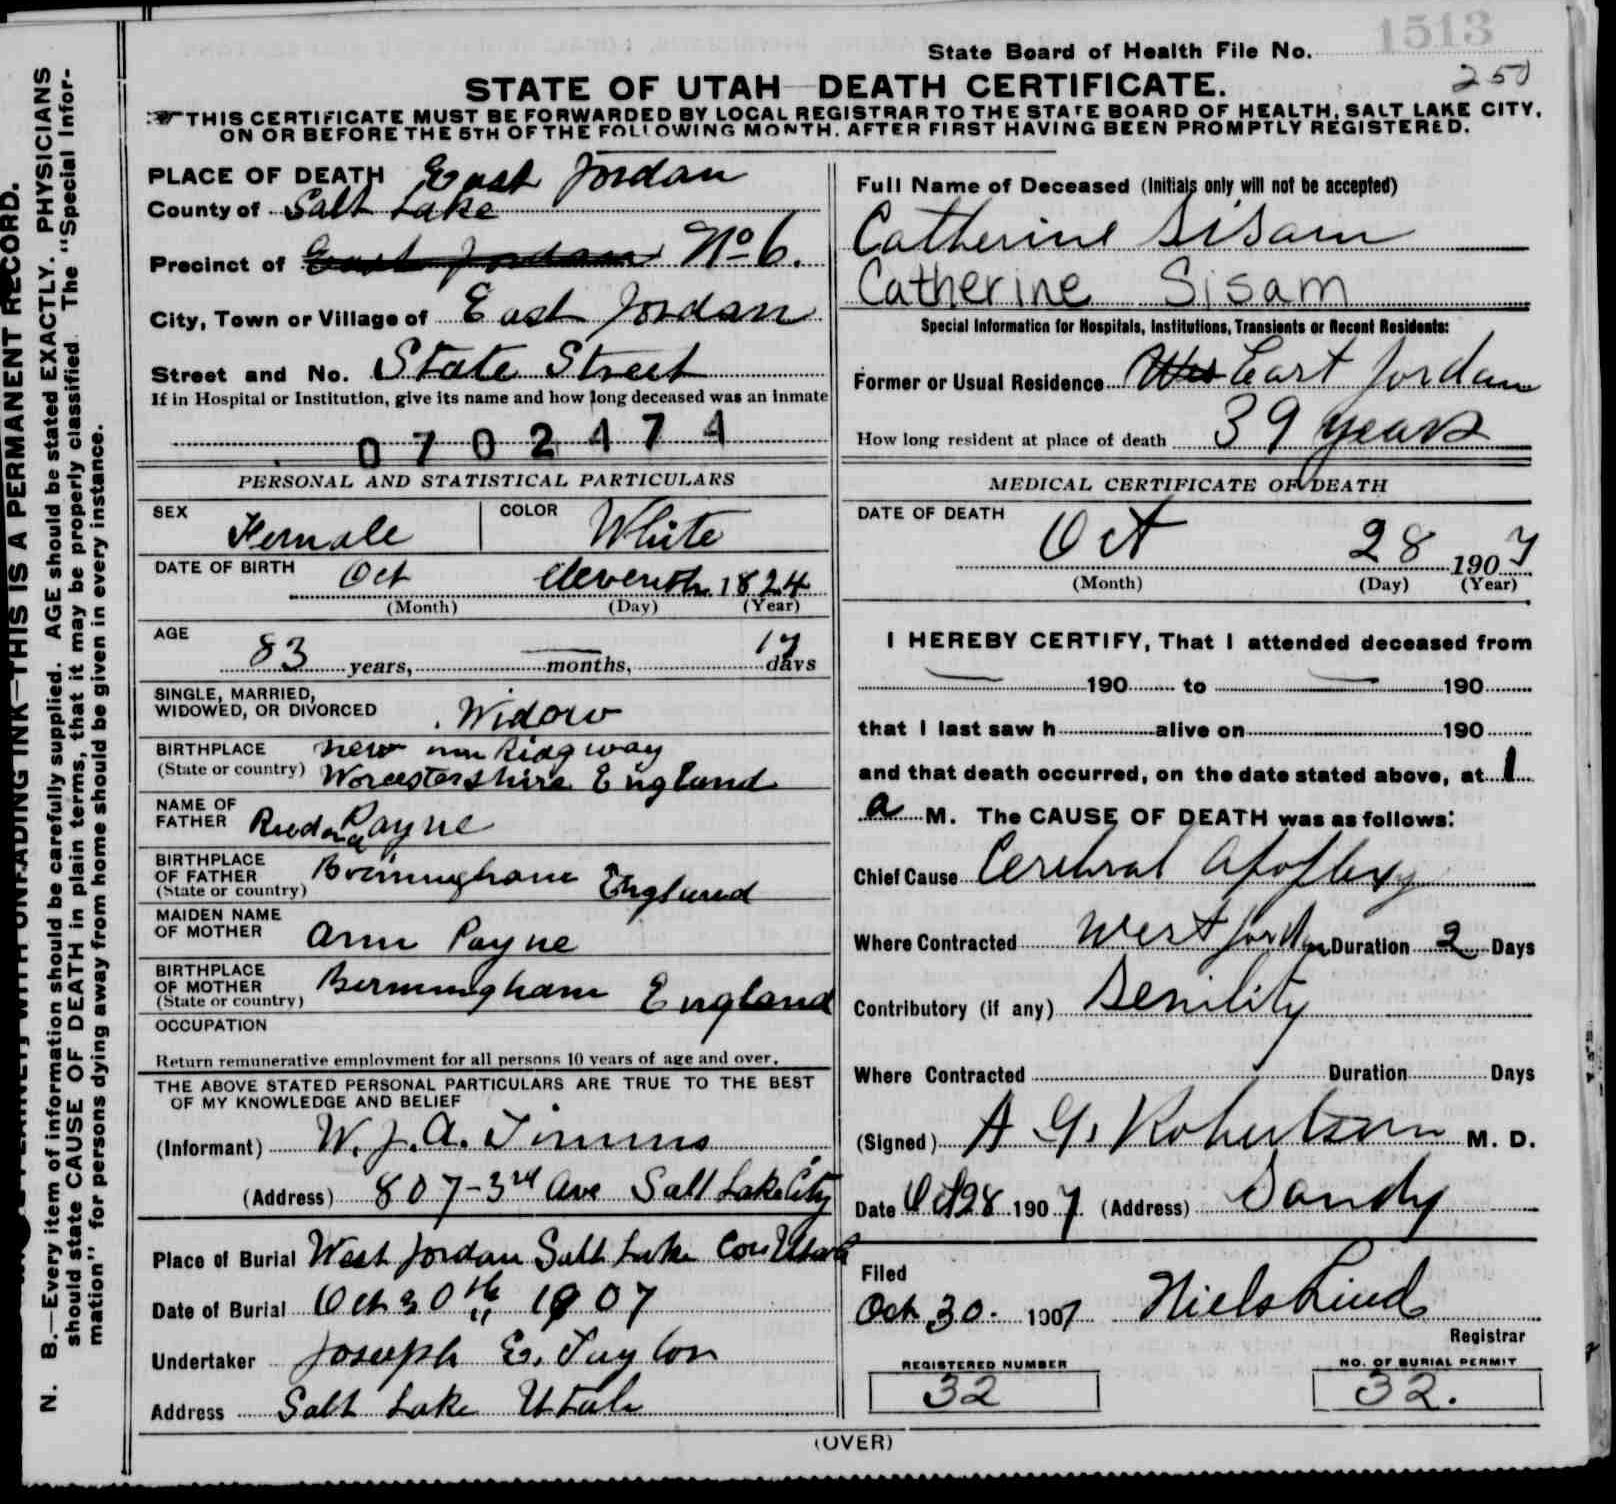 State Board of Health File No. 1513
250
STATE OF UTAH—DEATH CERTIFICATE.
THIS CERTIFICATE MUST BE FORWARDED BY LOCAL REGISTRAR TO THE STATE BOARD OF HEALTH, SALT LAKE CITY,
ON OR BEFORE THE 5TH OF THE FOLLOWING MONTH, AFTER FIRST HAVING BEEN PROMPTLY REGISTERED.
PLACE OF DEATH East Jordan
County of Salt Lake
Precinct of East Jordan No 6.
City, Town or Village of East Jordan
Street and No. State Street
If in Hospital or Institution, give its name and how long deceased was an inmate
0702474
PERSONAL AND STATISTICAL PARTICULARS
SEX Female COLOR White
DATE OF BIRTH Oct eleventh 1824
(Month) (Day) (Year)
AGE 83 years, — months, 17 days
SINGLE, MARRIED,
WIDOWED, OR DIVORCED Widow
BIRTHPLACE New inn Ridgway
(State or country) Worcestershire England
NAME OF
FATHER Payne
BIRTHPLACE
OF FATHER Birmingham England
(State or country)
MAIDEN NAME
OF MOTHER Ann Payne
BIRTHPLACE
OF MOTHER Birmingham England
(State or country)
OCCUPATION
Return remunerative employment for all persons 10 years of age and over.
THE ABOVE STATED PERSONAL PARTICULARS ARE TRUE TO THE BEST
OF MY KNOWLEDGE AND BELIEF
(Informant) W. J. A. Timms
(Address) 807-3rd Ave Salt Lake City
Place of Burial West Jordan Salt Lake Co Utah
Date of Burial Oct 30th 1907
Undertaker Joseph E. Taylor
Address Salt Lake Utah
Full Name of Deceased (Initials only will not be accepted)
Catherine Sisam
Catherine Sisam
Special Information for Hospitals, Institutions, Transients or Recent Residents:
Former or Usual Residence Wes East Jordan
How long resident at place of death 39 years
MEDICAL CERTIFICATE OF DEATH
DATE OF DEATH Oct 28 1907
(Month) (Day) (Year)
I HEREBY CERTIFY, That I attended deceased from
— 190 to — 190
that I last saw h alive on 190
and that death occurred, on the date stated above, at 1
a M. The CAUSE OF DEATH was as follows:
Chief Cause Cerebral Apoplexy
Where Contracted West Jordan Duration 2 Days
Contributory (if any) Senility
Where Contracted Duration Days
(Signed) A G. Robertson M. D.
Date Oct 28 1907 (Address) Sandy
Filed
Oct 30. 1907 Niels Lind
Registrar
REGISTERED NUMBER 32
NO. OF BURIAL PERMIT 32.
(OVER)
WITH UNFADING INK—THIS IS A PERMANENT RECORD.
N. B.—Every item of information should be carefully supplied. AGE should be stated EXACTLY. PHYSICIANS
should state CAUSE OF DEATH in plain terms, that it may be properly classified. The "Special Infor-
mation" for persons dying away from home should be given in every instance.